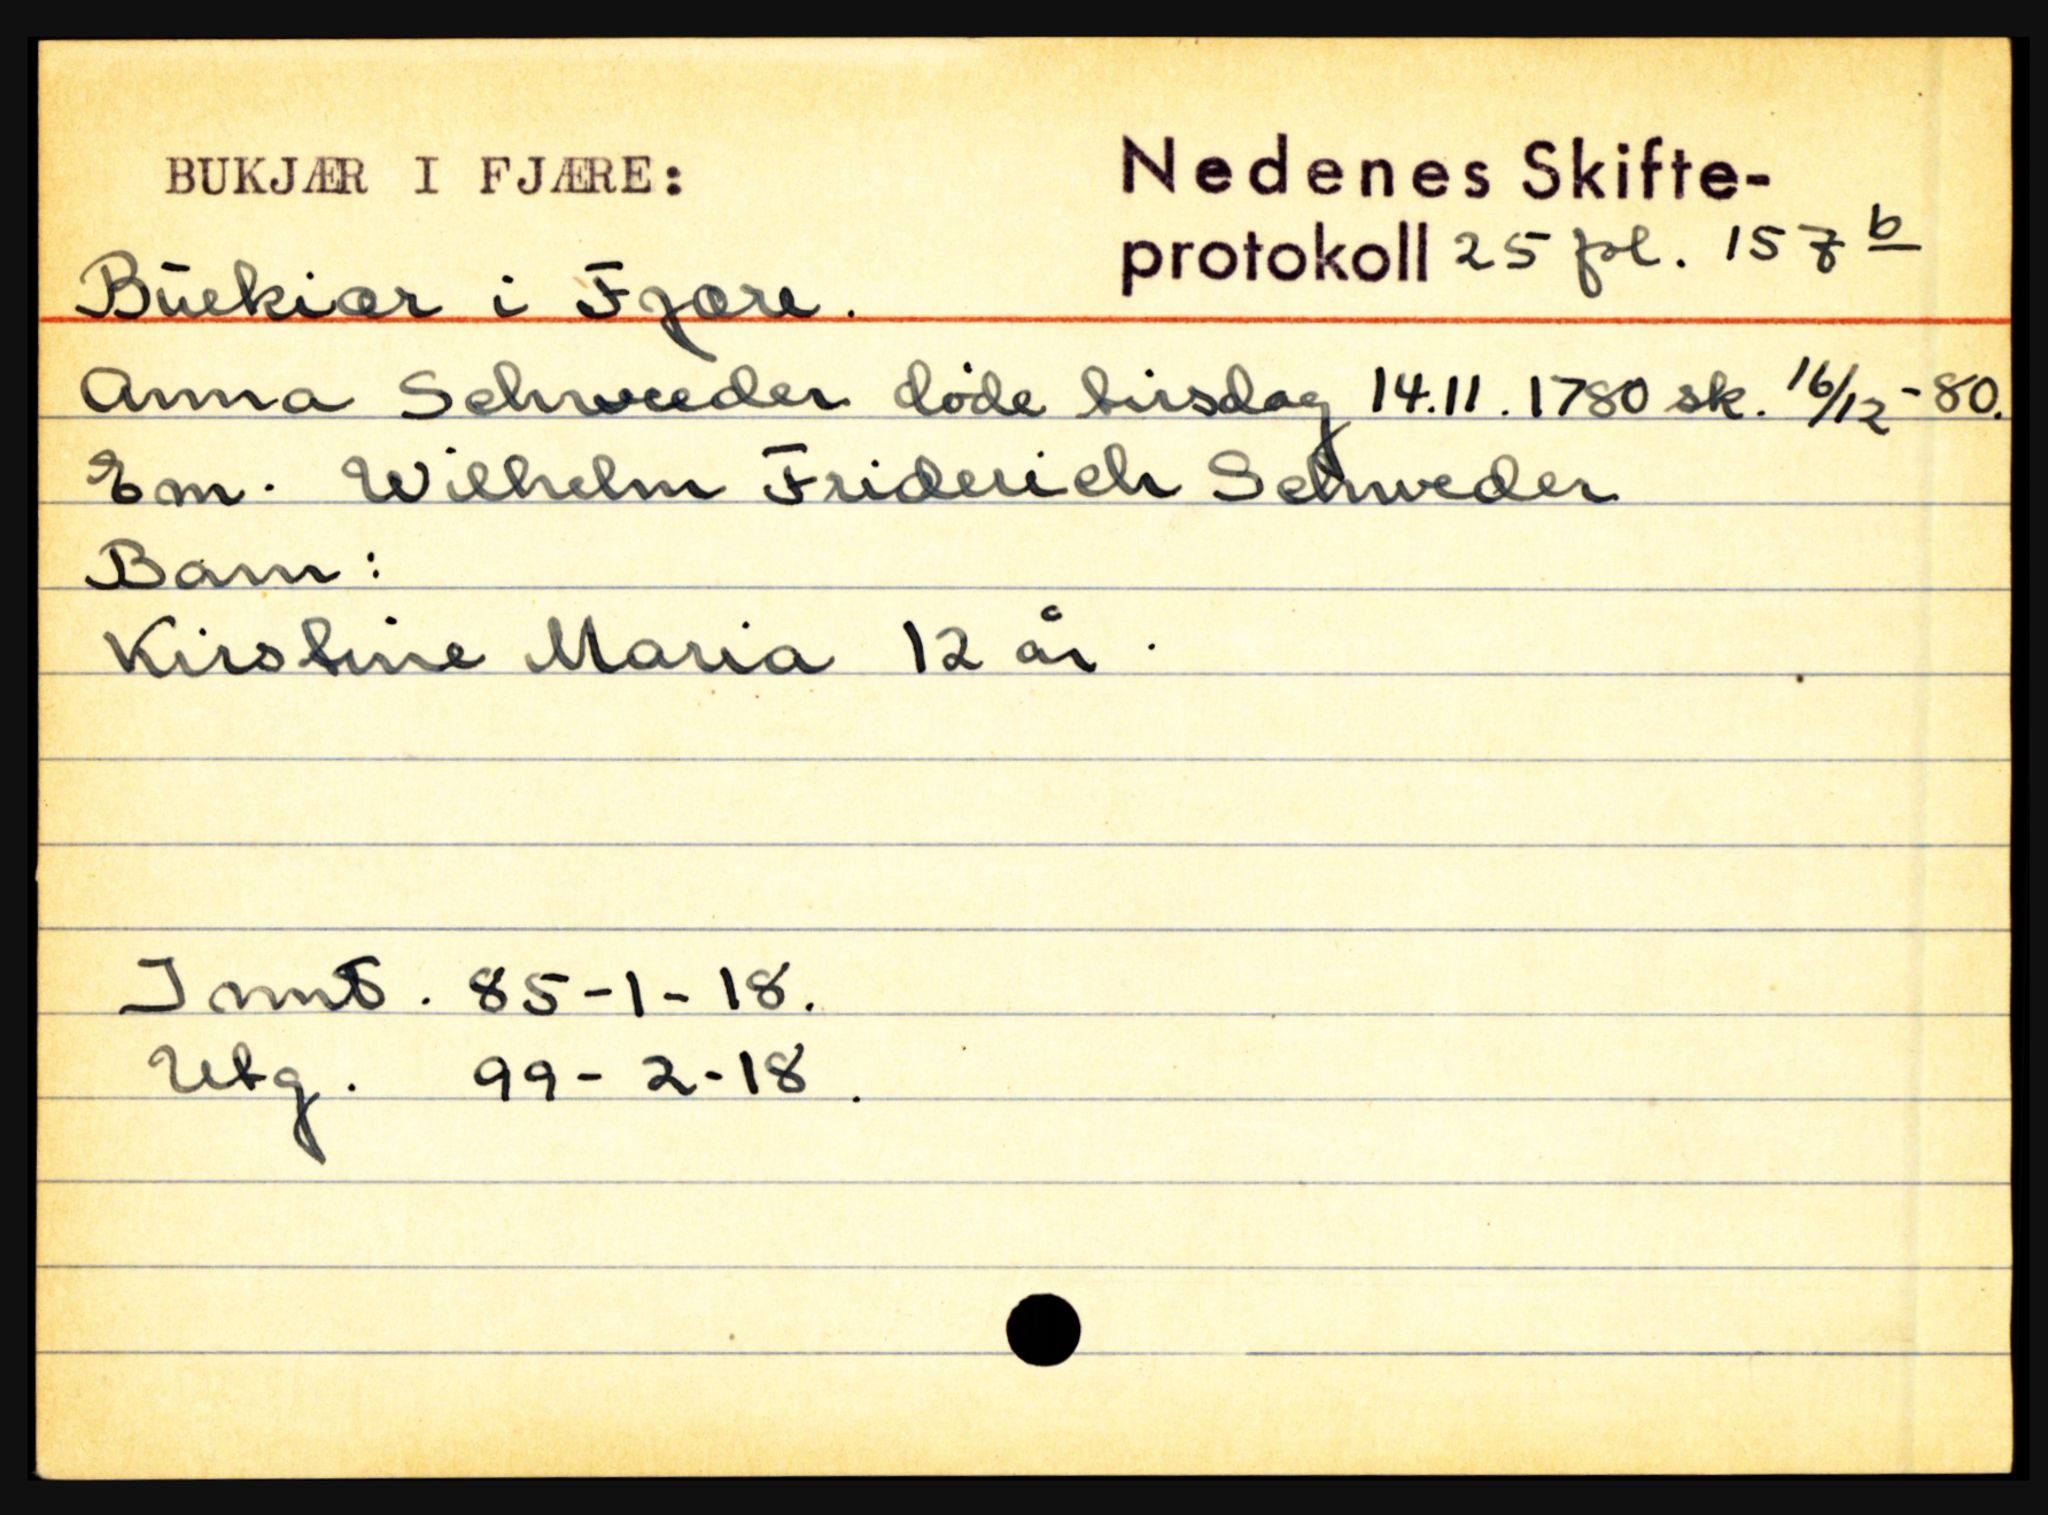 BUKJÆR I FJÆRE:
Nedenes Skifte-
protokoll 25 pl. 157 b
Buekiær i Fjære.
Anna Schweder døde tirsdag 14.11.1780 sk. 16/12-80.
Em. Wilhelm Friderich Schweder
Barn:
Kirstine Maria 12 år.
Innt. 85-1-18.
Utg. 99-2-18.